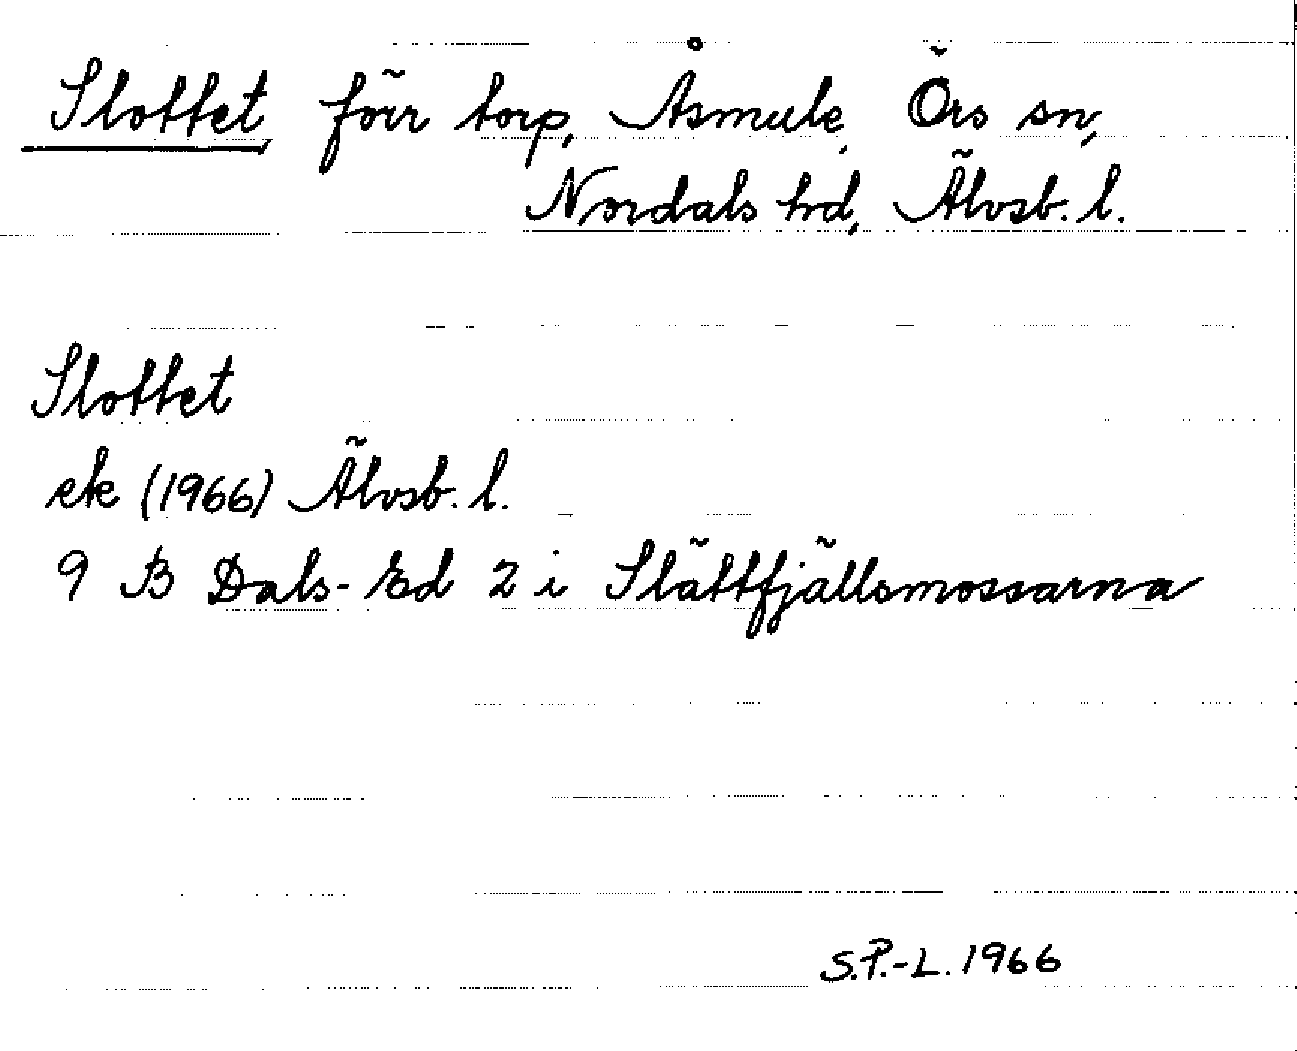 Slottet förr torp, Åsmule, Örs sn,
Nordals hd, Älvsb. l.
Slottet
ek (1966) Älvsb. l.
9 B Dals-Ed 2 i Slättfjällsmossarna
S.P.-L. 1966